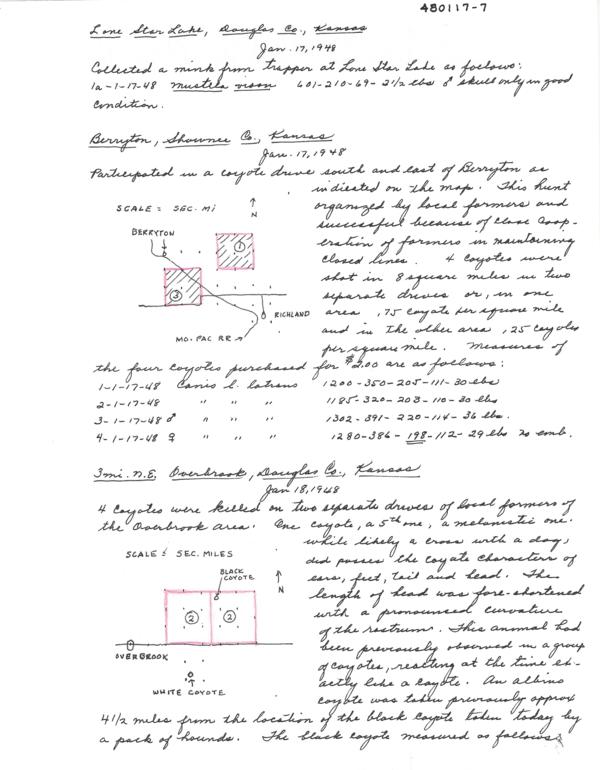 480117-7
Lone Star Lake, Douglas Co., Kansas
Jan. 17, 1948
Collected a mink from trapper at Lone Star Lake as follows:
1a-1-17-48 Mustela vison 601-210-69- 2 1/2 lbs ♂ skull only in good
condition.
Berryton, Shawnee Co., Kansas
Jan. 17, 1948
Participated in a coyote drive south and east of Berryton as
indicated on the map. This hunt
organized by local farmers and
successful because of close coop-
eration of farmers in maintaining
closed lines. 4 coyotes were
shot in 8 square miles in two
separate drives or, in one
area .75 coyote per square mile
and in the other area .25 coyotes
per square mile. Measures of
SCALE = SEC. Mi
N
BERRYTON
1
3
RICHLAND
MO. PAC RR
the four coyotes purchased for $2.00 are as follows:
1-1-17-48 Canis l. latrans 1200-350-205-111-30 lbs
2-1-17-48 " " " 1185-320-203-110-30 lbs
3-1-17-48 ♂ " " " 1302-391-220-114-36 lbs.
4-1-17-48 ♀ " " " 1280-386-198-112-29 lbs no emb.
3 mi. N.E. Overbrook, Douglas Co., Kansas
Jan 18, 1948
4 coyotes were killed on two separate drives of local farmers of
the Overbrook area. One coyote, a 5th one, a melanistic one.
while likely a cross with a dog,
did posses the coyote characters of
ears, feet, tail and head. The
length of head was fore-shortened
with a pronounced curvature
of the rostrum. This animal had
been previously observed in a group
of coyotes, reacting at the time ex-
actly like a coyote. An albino
coyote was taken previously approx
SCALE = SEC. MILES
BLACK
COYOTE
N
2
2
OVERBROOK
WHITE COYOTE
4 1/2 miles from the location of the black coyote taken today by
a pack of hounds. The black coyote measured as follows: